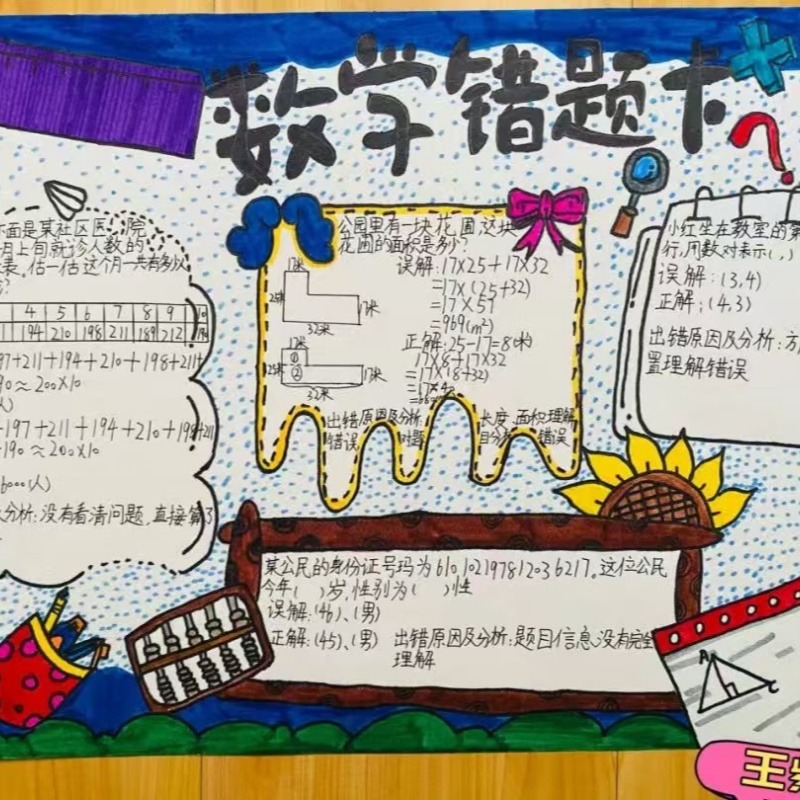 数学错题卡
下面是某社区医院
月上旬就诊人数的
表,估一估这个月一共有多少人
4 5 6 7 8 9 10
194 210 198 211 189 212
97+211+194+210+198+211+
90≈200×10
人)
+197+211+194+210+198+211
+190≈200×10
6000(人)
分析:没有看清问题,直接算了
公园里有一块花圃,这块
花圃的面积是多少?
17米
25米
17米
32米
误解:17×25+17×32
=17×(25+32)
=17×57
=969(m²)
17米
①
②
25米
17米
32米
正解:25-17=8(米)
17×8+17×32
=17×(8+32)
=17×4
出错原因及分析:
长度、面积理解
错误
对题
目分析
错误
小红坐在教室的第
行,用数对表示(,)
误解:(3,4)
正解:(4,3)
出错原因及分析:方
置理解错误
某公民的身份证号码为610102197812036217。这位公民
今年( )岁,性别为( )性
误解:(46)、(男)
正解:(45)、(男) 出错原因及分析:题目信息没有完全
理解
A
C
王